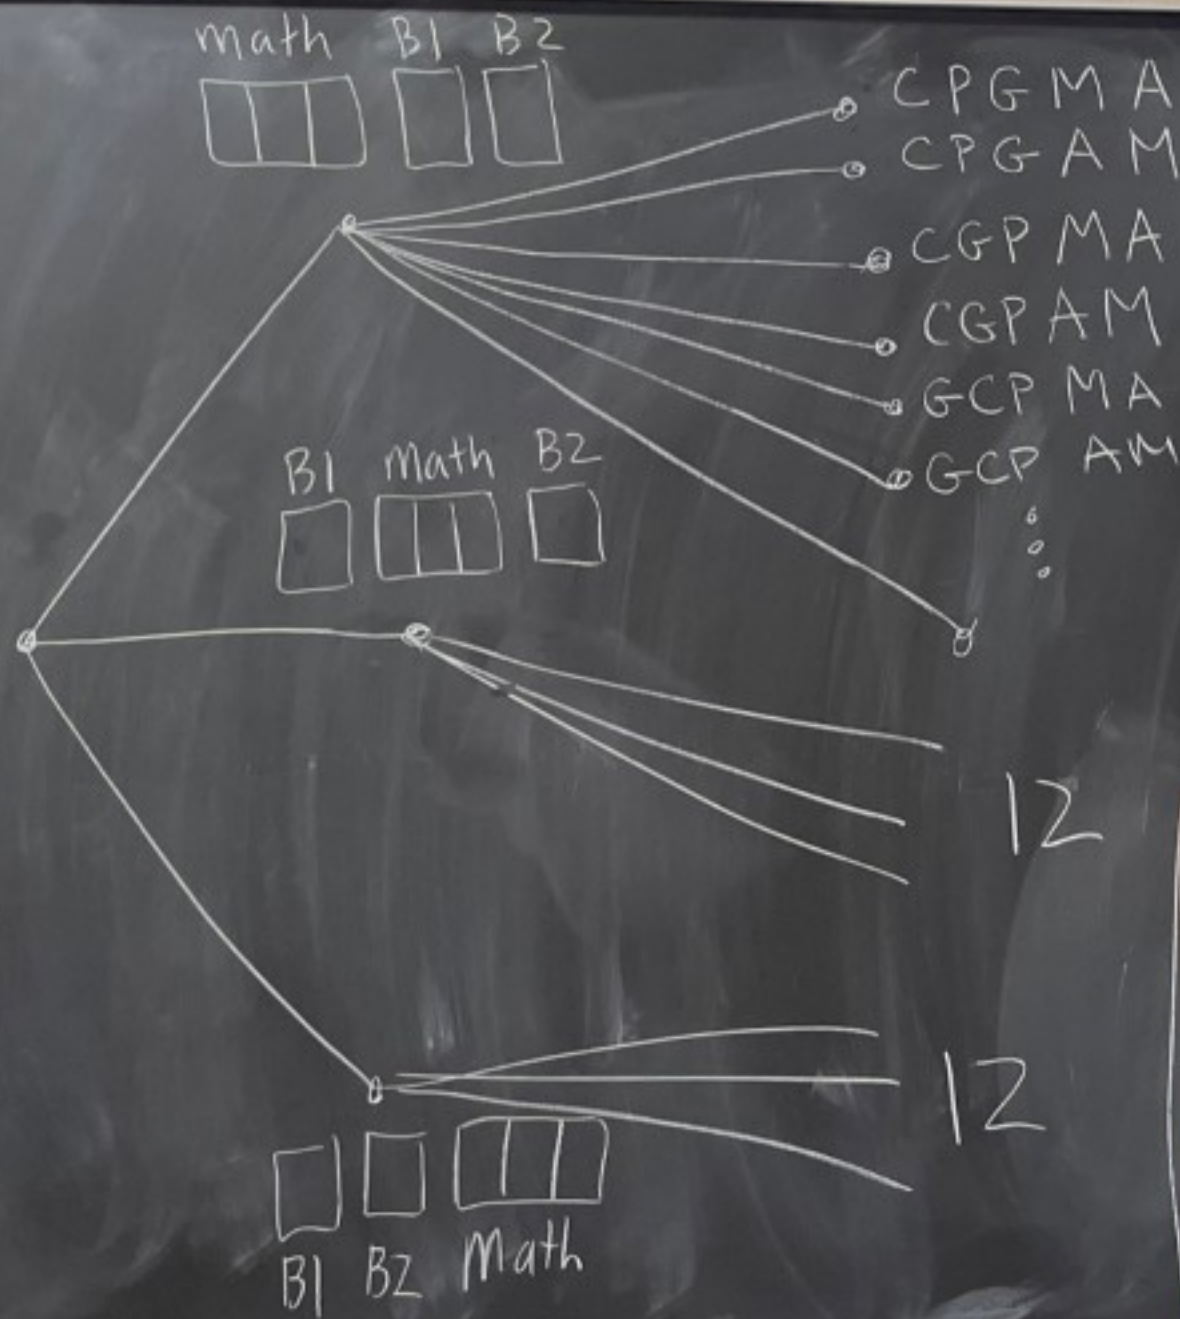 Math B1 B2
CPGMA
CPGAM
CGP MA
CGPAM
GCP MA
GCP AM
B1 Math B2
12
12
B1 B2 Math